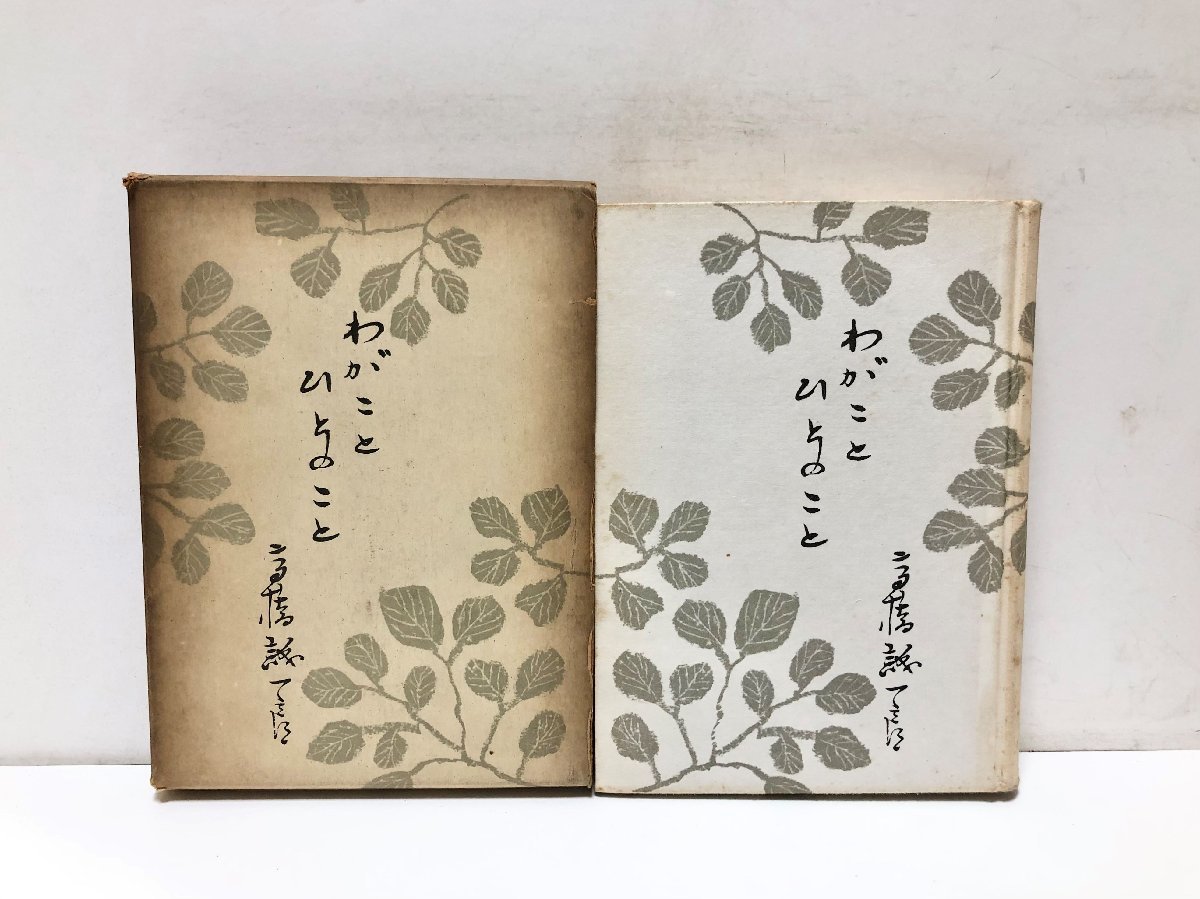 わがこと
ひとのこと
高橋誠一郎
わがこと
ひとのこと
高橋誠一郎